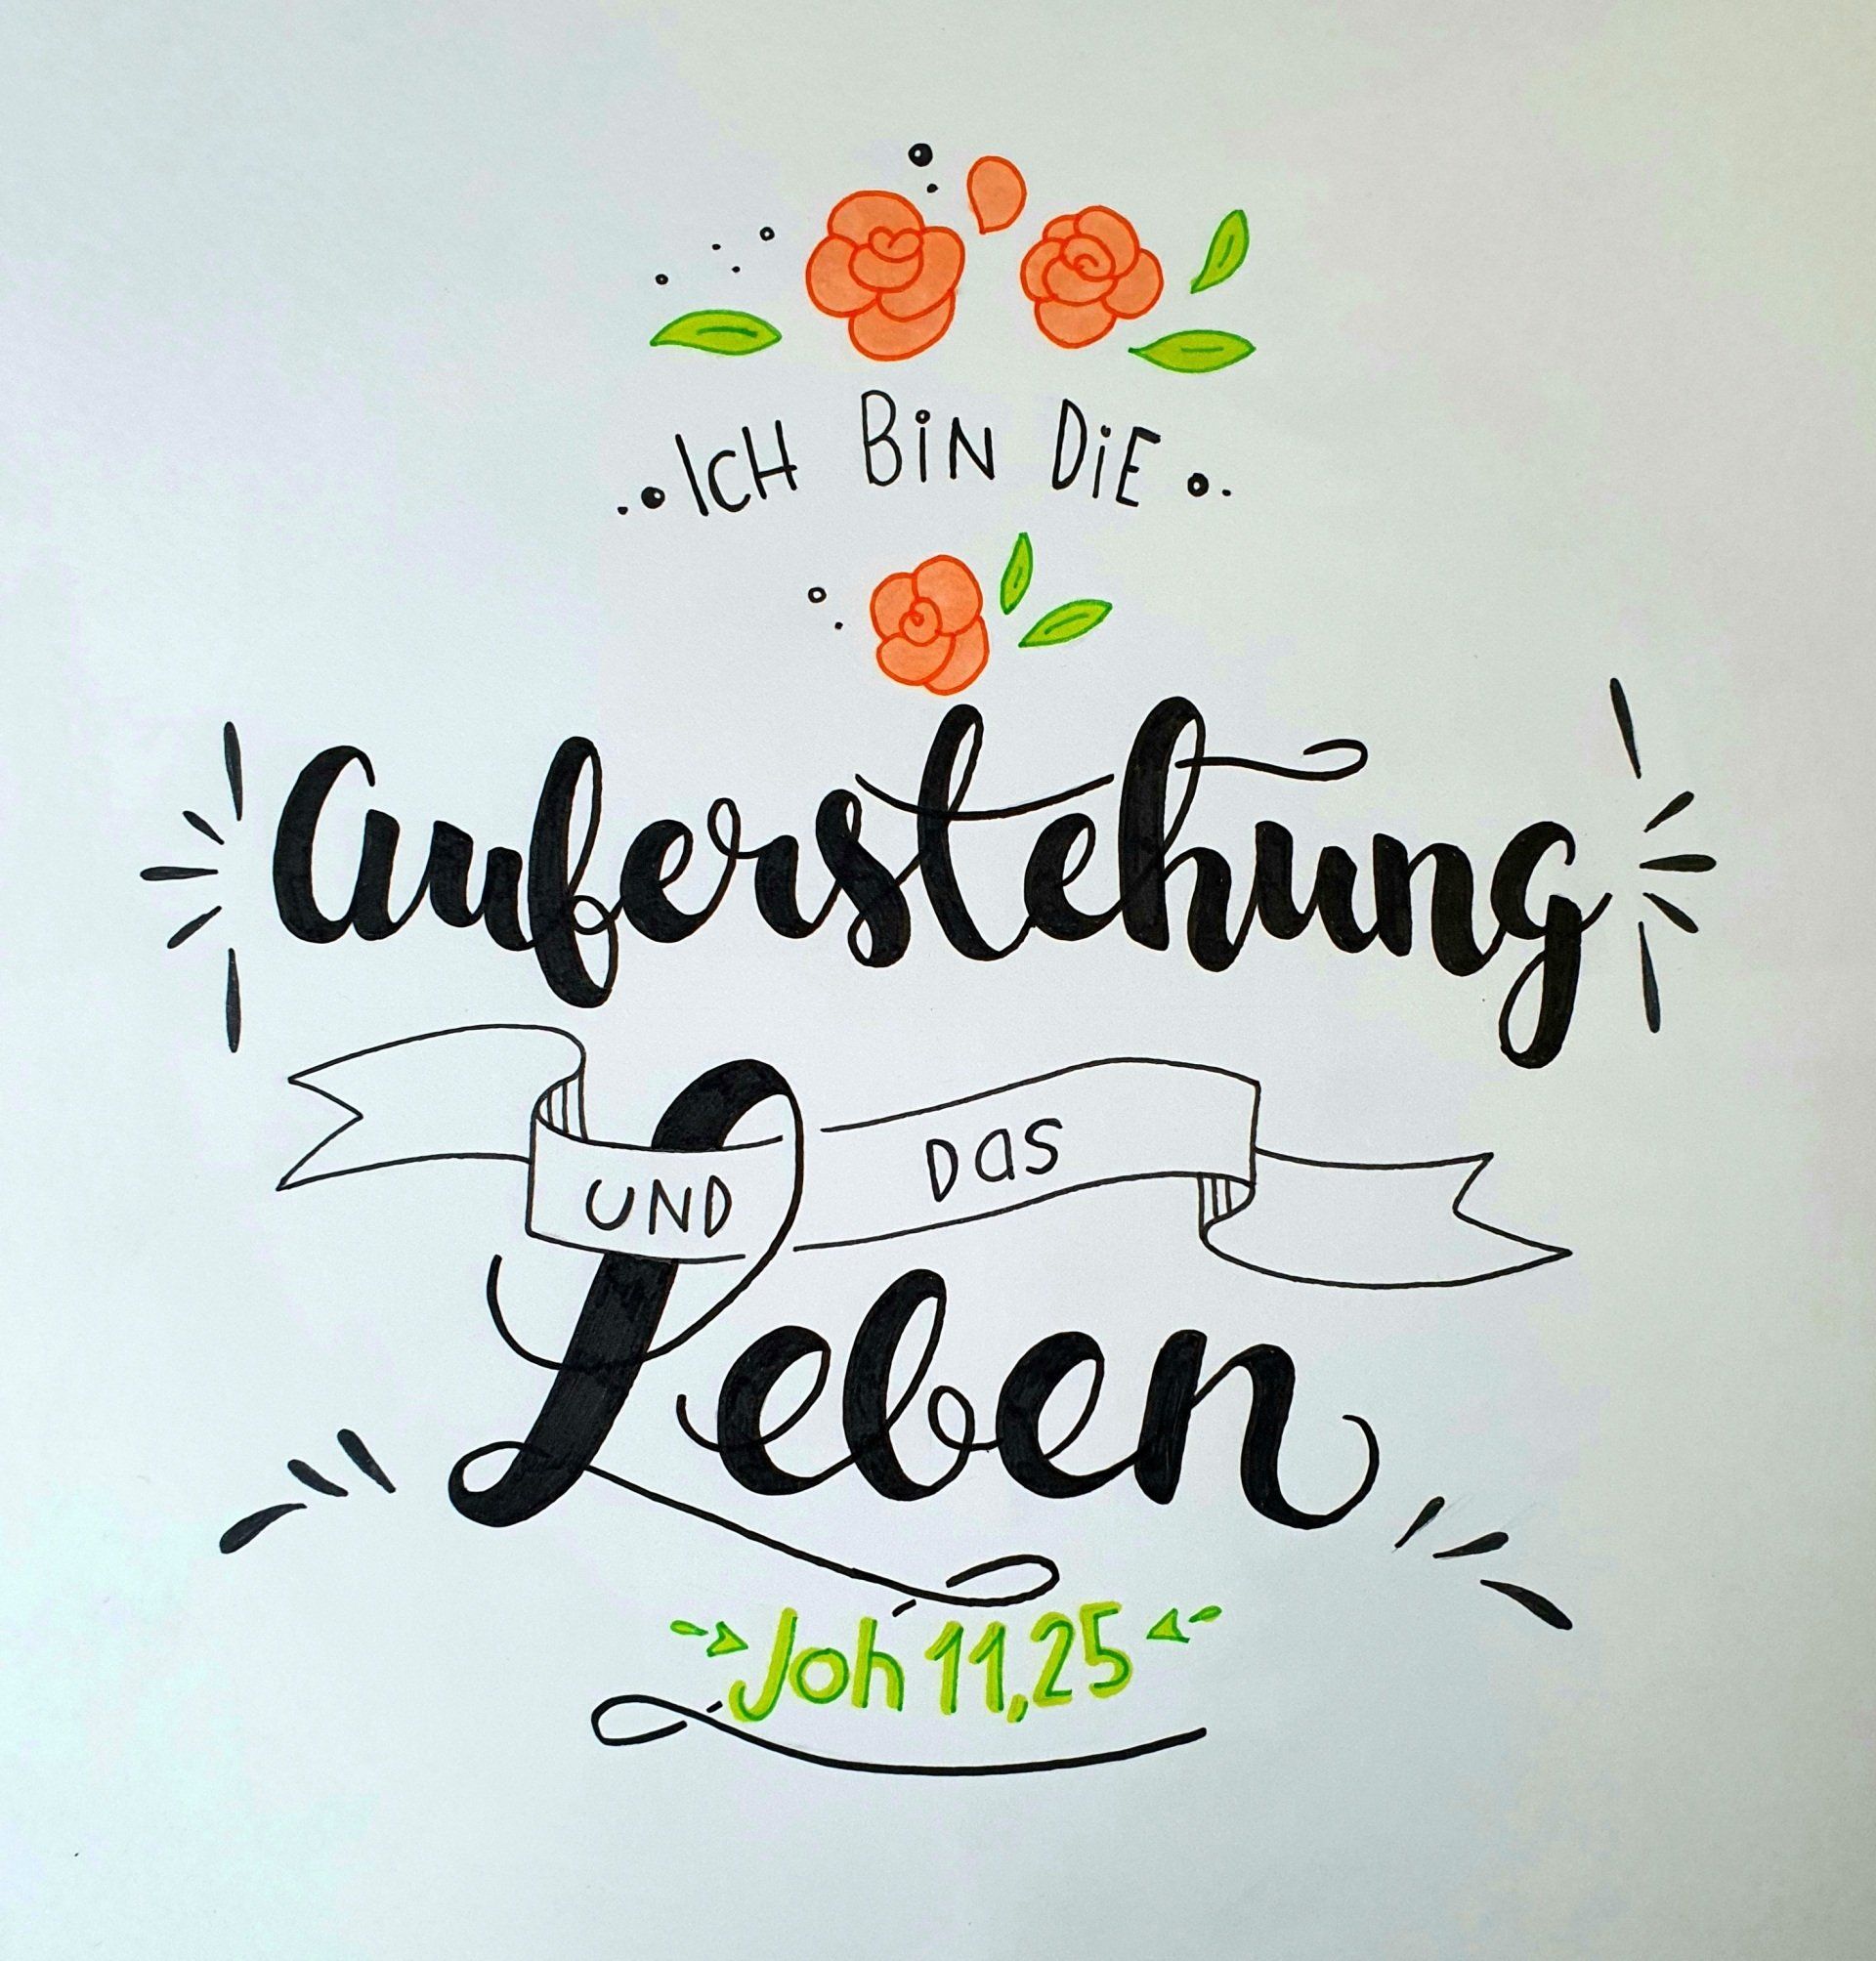 ICH BiN DiE
Auferstehung
UND DaS
Leben
Joh 11,25